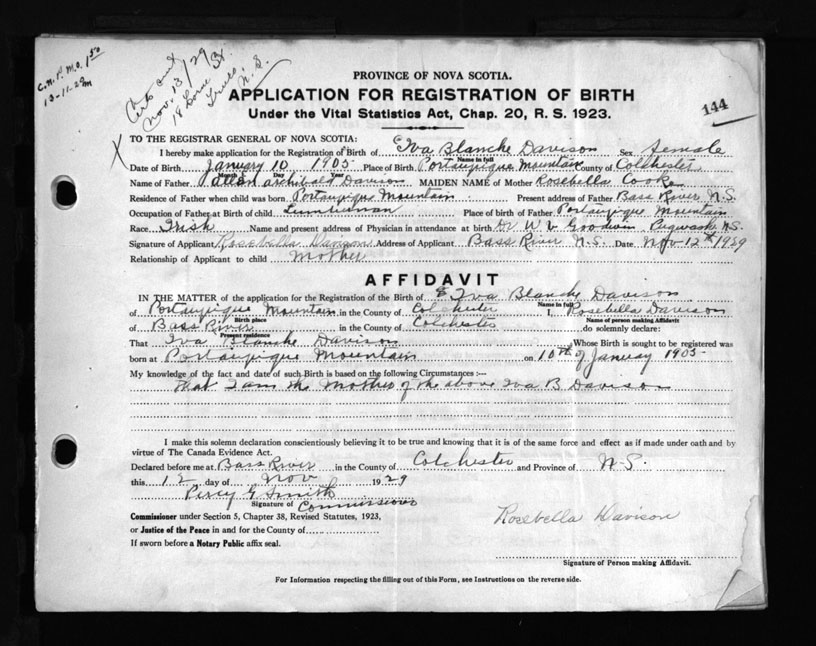 C.N.P.M.O. 1.50
13-11-29
Nov. 13/29
Truro, N.S.
144
PROVINCE OF NOVA SCOTIA.
APPLICATION FOR REGISTRATION OF BIRTH
Under the Vital Statistics Act, Chap. 20, R. S. 1923.
X
TO THE REGISTRAR GENERAL OF NOVA SCOTIA:
I hereby make application for the Registration of Birth of Iva Blanche Davison Sex Female
Name in full
Date of Birth January 10 1905 Place of Birth Portaupique Mountain County of Colchester
Month Day Year
Name of Father Allan Archibald Davison MAIDEN NAME of Mother Rosebella Cook
Residence of Father when child was born Portaupique Mountain Present address of Father Bass River N.S.
Occupation of Father at Birth of child Lumberman Place of birth of Father Portaupique Mountain
Race Irish Name and present address of Physician in attendance at birth Dr W. V. Goodwin Pugwash N.S.
Signature of Applicant Rosebella Davison Address of Applicant Bass River N.S. Date Nov 12th 1929
Relationship of Applicant to child Mother
AFFIDAVIT
IN THE MATTER of the application for the Registration of the Birth of Iva Blanche Davison
Name in full
of Portaupique Mountain, in the County of Colchester I, Rosebella Davison
Birth place Name of person making Affidavit
of Bass River in the County of Colchester do solemnly declare:
Present residence
That Iva Blanche Davison Whose Birth is sought to be registered was
born at Portaupique Mountain on 10th of January 1905
My knowledge of the fact and date of such Birth is based on the following Circumstances :—
That I am the Mother of the above Iva B Davison
I make this solemn declaration conscientiously believing it to be true and knowing that it is of the same force and effect as if made under oath and by
virtue of The Canada Evidence Act.
Declared before me at Bass River in the County of Colchester and Province of N.S.
this 12 day of Nov 1929
Percy G Smith
Signature of Commissioner
Commissioner under Section 5, Chapter 38, Revised Statutes, 1923,
or Justice of the Peace in and for the County of
If sworn before a Notary Public affix seal.
Rosebella Davison
Signature of Person making Affidavit.
For Information respecting the filling out of this Form, see Instructions on the reverse side.